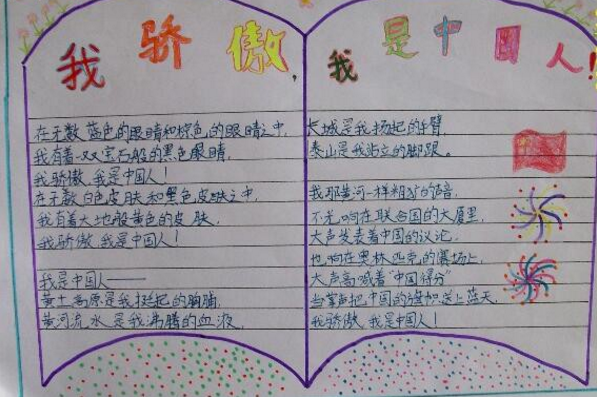 我骄傲,我是中国人!
在无数蓝色的眼睛和棕色的眼睛之中,
我有着一双宝石般的黑色眼睛,
我骄傲,我是中国人!
在无数白色皮肤和黑色皮肤之中,
我有着大地般黄色的皮肤,
我骄傲,我是中国人!
我是中国人——
黄土高原是我挺起的胸脯,
黄河流水是我沸腾的血液,
长城是我扬起的手臂,
泰山是我站立的脚跟。
我那黄河一样粗犷的声音,
不光响在联合国的大厦里,
大声发表着中国的议论,
也响在奥林匹克的赛场上,
大声高喊着“中国得分”
当掌声把中国的旗帜送上蓝天,
我骄傲,我是中国人!